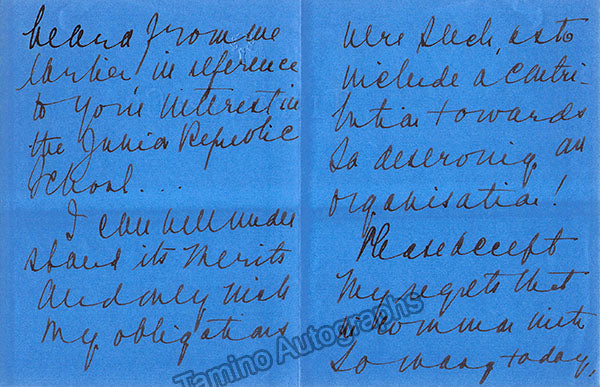 heard from me
earlier in reference
to your interest in
the Junior Republic
School . . .
I can well under
stand its merits
and only wish
my obligations
were such, as to
include a contri-
bution towards
so deserving an
organisation!
Please accept
my regrets that
in common with
so many today,
Tamino Autographs